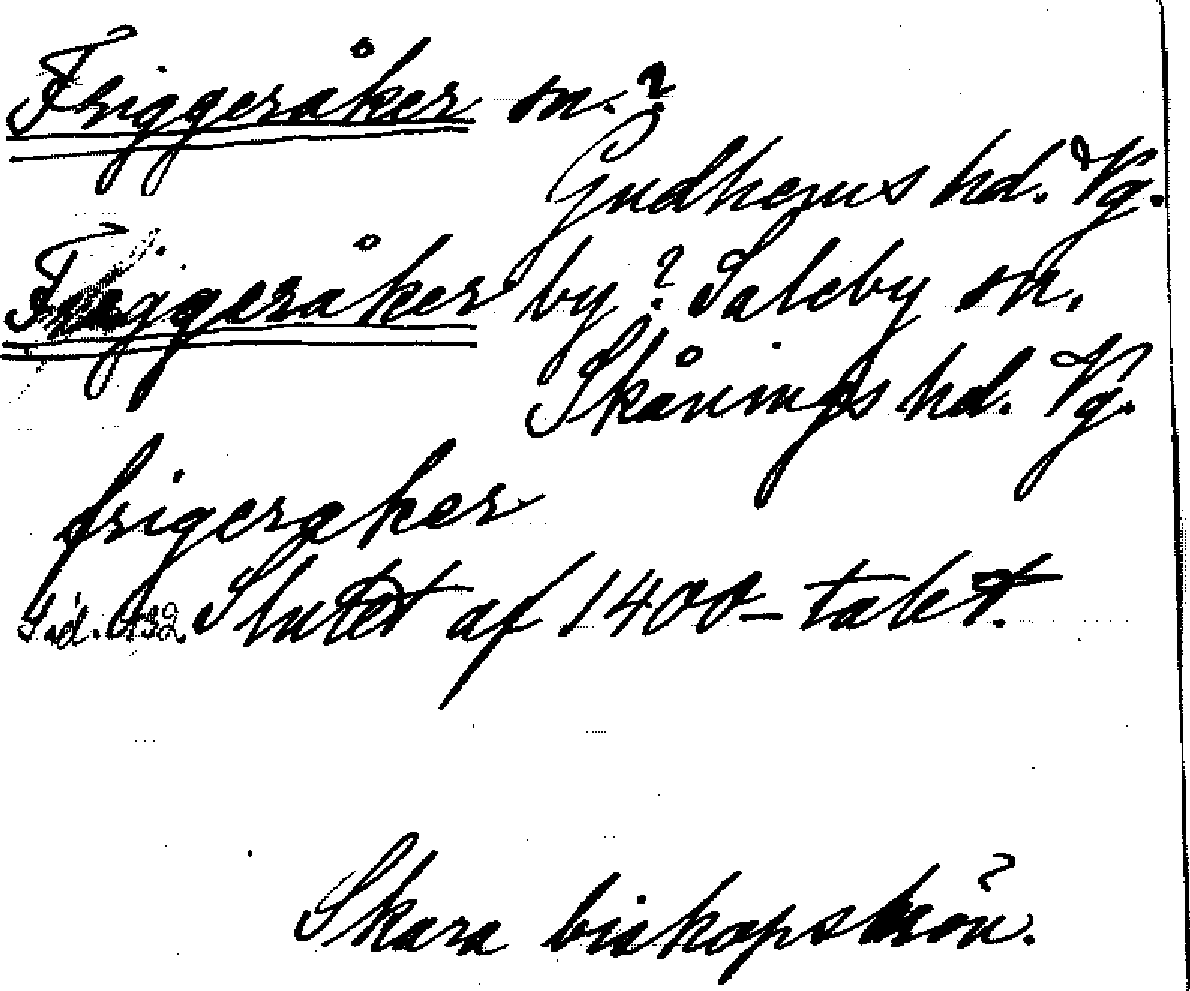 Friggeråker sn.?
Gudhems hd. Vg.
Friggeråker by? Saleby sn.
Skånings hd. Vg.
frigeraker
Sid. 132. Slutet af 1400-talet.
Skara biskopskrön.